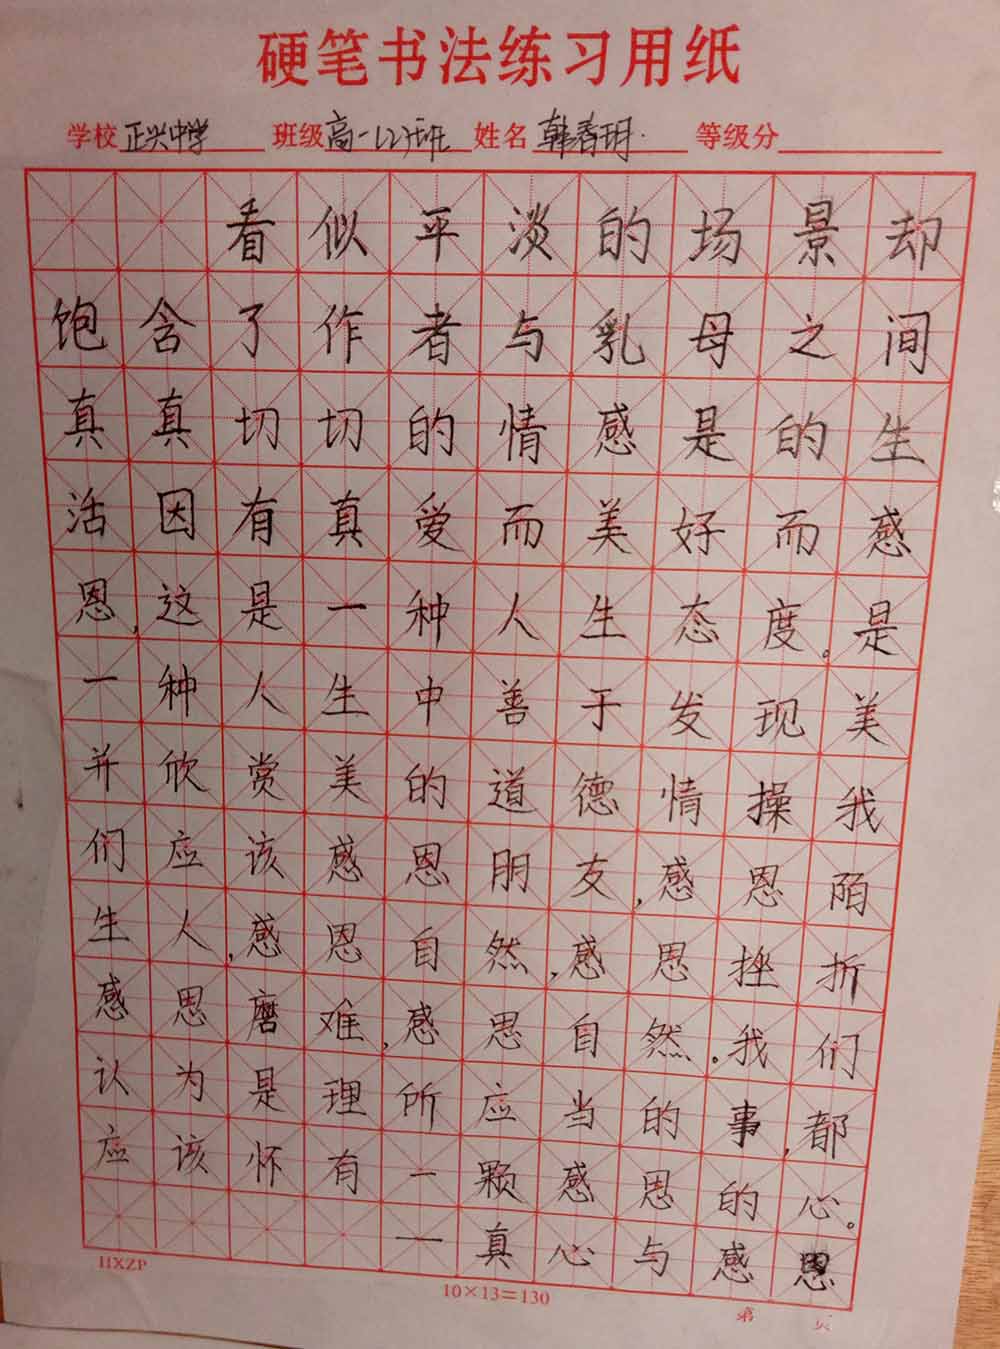 硬笔书法练习用纸
学校 正兴中学 班级 高一(2)班 姓名 韩春玥 等级分
看似平淡的场景却
饱含了作者与乳母之间
真真切切的情感是的生
活因有真爱而美好而感
恩,这是一种人生态度。是
一种人生中善于发现美
并欣赏美的道德情操我
们应该感恩朋友,感恩陌
生人,感恩自然,感恩挫折
感恩磨难,感恩自然。我们
认为是理所应当的事,都
应该怀有一颗感恩的心。
一真心与感恩
HXZP
10×13=130
第 页